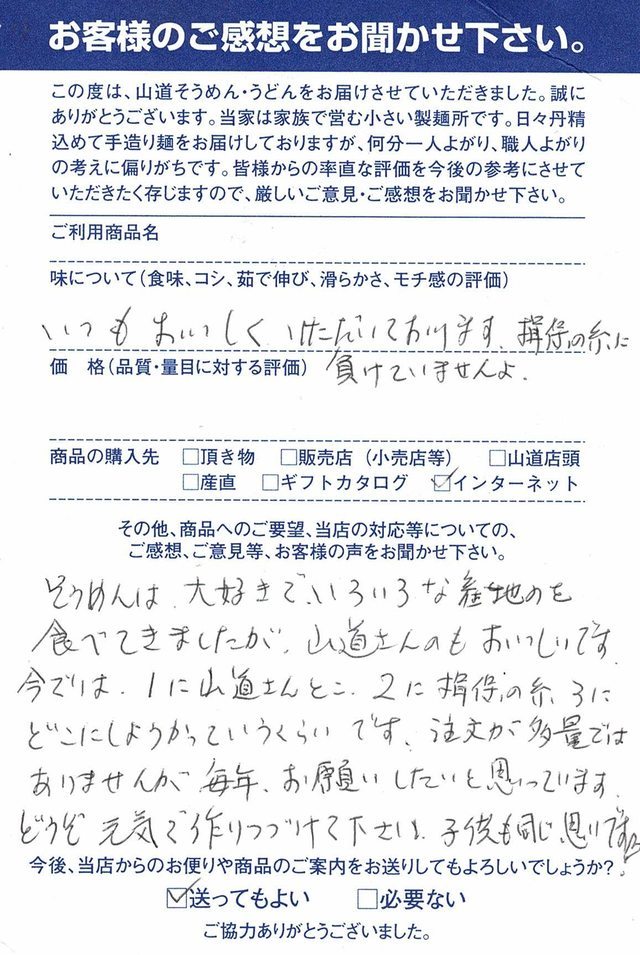 お客様のご感想をお聞かせ下さい。
この度は、山道そうめん・うどんをお届けさせていただきました。誠に
ありがとうございます。当家は家族で営む小さい製麺所です。日々丹精
込めて手造り麺をお届けしておりますが、何分一人よがり、職人よがり
の考えに偏りがちです。皆様からの率直な評価を今後の参考にさせて
いただきたく存じますので、厳しいご意見・ご感想をお聞かせ下さい。
ご利用商品名
味について(食味、コシ、茹で伸び、滑らかさ、モチ感の評価)
いつもおいしくいただいております。揖保の糸に
価 格(品質・量目に対する評価) 負けていませんよ。
商品の購入先 □頂き物 □販売店(小売店等) □山道店頭
□産直 □ギフトカタログ ☑インターネット
その他、商品へのご要望、当店の対応等についての、
ご感想、ご意見等、お客様の声をお聞かせ下さい。
そうめんは、大好きで、いろいろな産地のを
食べてきましたが、山道さんのもおいしいです。
今では、1に山道さんとこ、2に揖保の糸、3に
どこにしようかっていうくらいです。注文が多量では
ありませんが、毎年、お願いしたいと思っています。
どうぞ元気で作りつづけて下さい。子供も同じ思いです
今後、当店からのお便りや商品のご案内をお送りしてもよろしいでしょうか?
☑送ってもよい □必要ない
ご協力ありがとうございました。